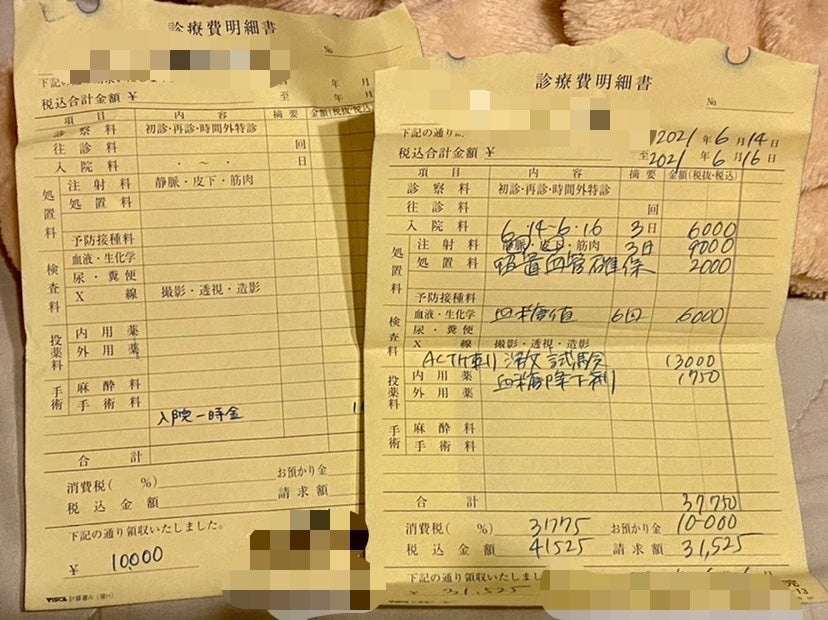 診療費明細書
№
下記の通り
年 月
税込合計金額 ¥
至 年 月
項目 内容 摘要 金額(税抜・税込)
診察料 初診・再診・時間外特診
往診料 回
入院料 ・ ～ ・ 日
処置料 注射料 静脈・皮下・筋肉
処置料
予防接種料
検査料 血液・生化学
尿・糞便
X線 撮影・透視・造影
投薬料 内用薬
外用薬
手術 麻酔料
手術料
入院一時金
合計
消費税( %) お預かり金
税込金額 請求額
下記の通り領収いたしました。
¥ 10,000
VISCA 計算書A
診療費明細書
№
下記の通り
2021年6月14日
税込合計金額 ¥
至2021年6月16日
項目 内容 摘要 金額(税抜・税込)
診察料 初診・再診・時間外特診
往診料 回
入院料 6・14～6・16 3日 6000
処置料 注射料 静脈・皮下・筋肉 3日 9000
処置料 留置血管確保 2000
予防接種料
検査料 血液・生化学 血糖値 6回 6000
尿・糞便
X線 撮影・透視・造影
ACTH刺激試験 13000
投薬料 内用薬 血糖降下剤 1750
外用薬
手術 麻酔料
手術料
合計 37,750
消費税( %) 3,775 お預かり金 10,000
税込金額 41525 請求額 31,525
下記の通り領収いたしました。
¥ 31,525